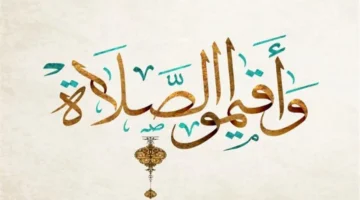 وَأَقيمُوا الصَّلَاةَ